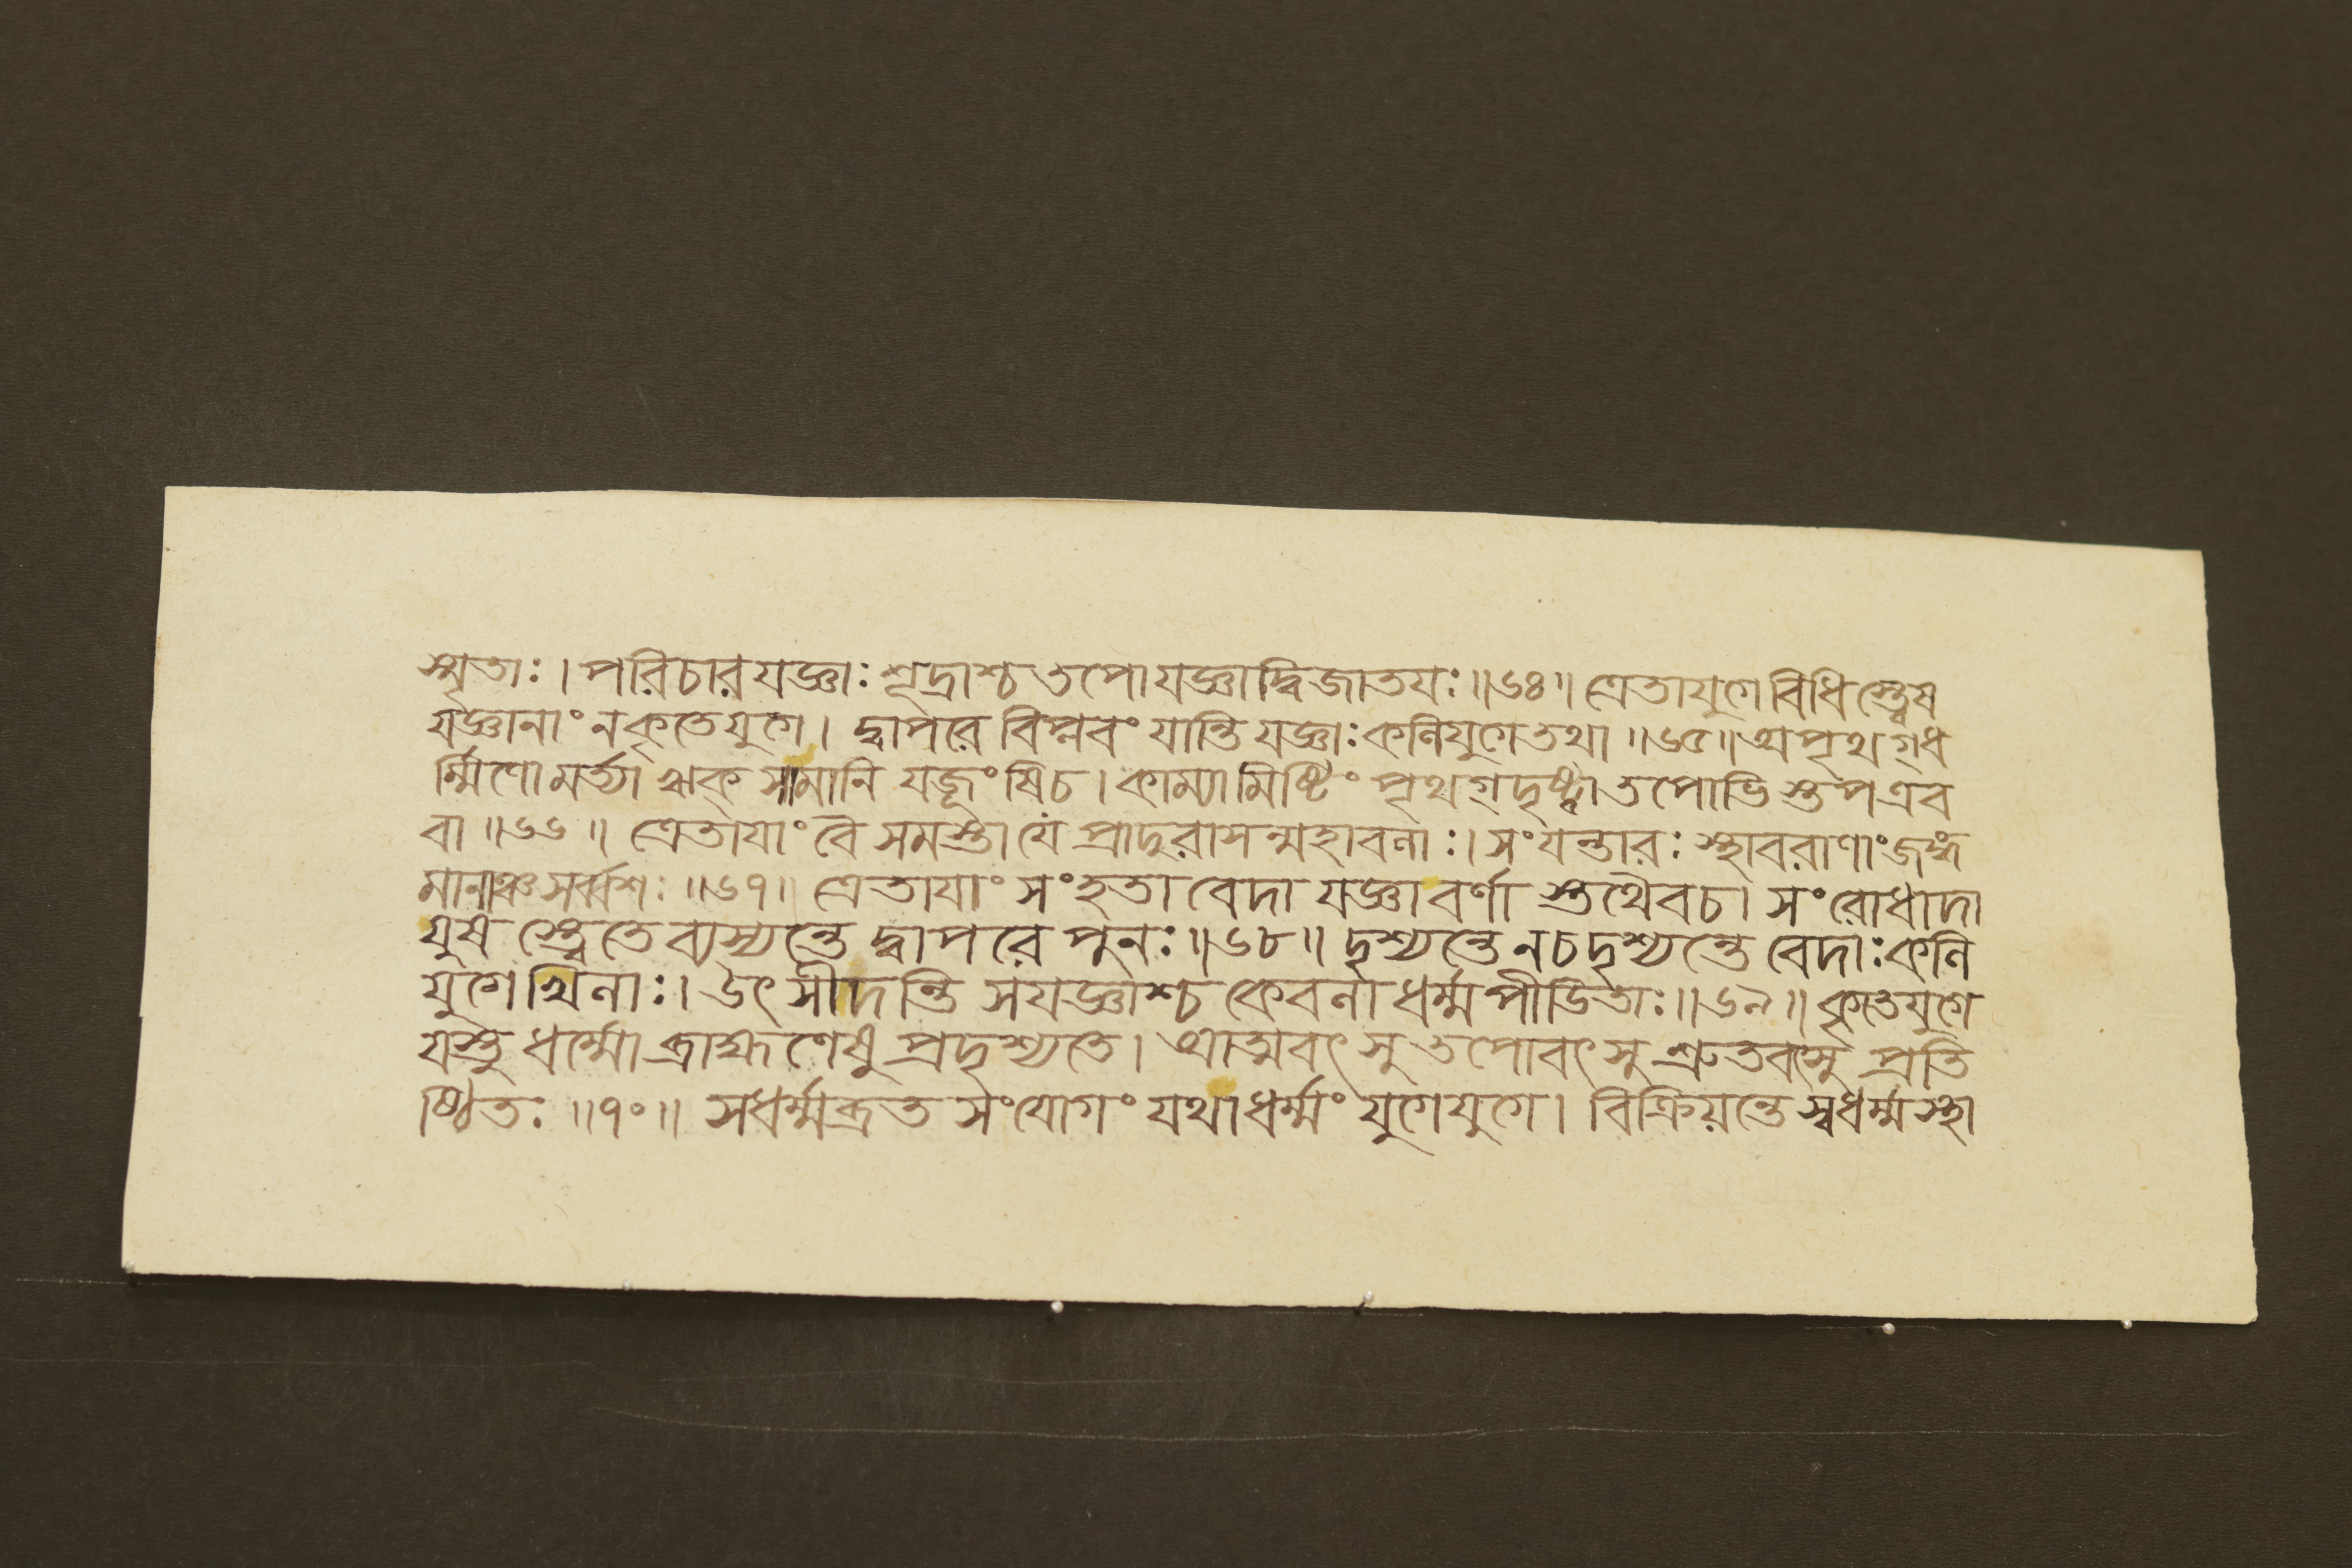 স্মৃতাঃ।পরিচারযজ্ঞাঃশূদ্রাশ্চতপোযজ্ঞাদ্বিজাতযঃ॥৬৪॥ত্রেতাযুগেবিধিস্ত্বেষ
যজ্ঞানাংনকৃতেযুগে। দ্বাপরে বিপ্লবং যান্তি যজ্ঞাঃকলিযুগেতথা॥৬৫॥অপৃথগ্ধ
র্ম্মিণোমর্ত্যা ঋক্ সামানি যজূংষিচ।কাম্যামিষ্টিং পৃথগ্দৃষ্ট্বাতপোভিস্তপএব
বা॥৬৬॥ ত্রেতাযাংবৈ সমস্তাযে প্রাদুরাসন্মহাবলাঃ।সংযন্তারঃ স্থাবরাণাংজঙ্গ
মানাঞ্চসর্ব্বশঃ॥৬৭॥ ত্রেতাযাং সংহতা বেদা যজ্ঞাবর্ণা স্তথৈবচ। সংরোধাদা
যুষ স্ত্বেতেব্যস্যন্তে দ্বাপরে পুনঃ॥৬৮॥ দৃশ্যন্তেনচদৃশ্যন্তে বেদাঃকলি
যুগেখিলাঃ।উৎসীদন্তি সযজ্ঞাশ্চ কেবলাধর্ম্মপীডিতাঃ॥৬৯॥ কৃতেযুগে
যস্তু ধর্ম্মো ব্রাহ্মণেষু প্রদৃশ্যতে। আত্মবৎসুতপোবৎসু শ্রুতবৎসু প্রতি
ষ্ঠিতঃ॥৭০॥ সধর্ম্মব্রত সংযোগং যথাধর্ম্মং যুগেযুগে। বিক্রিয়ন্তেস্বধর্ম্মস্থা